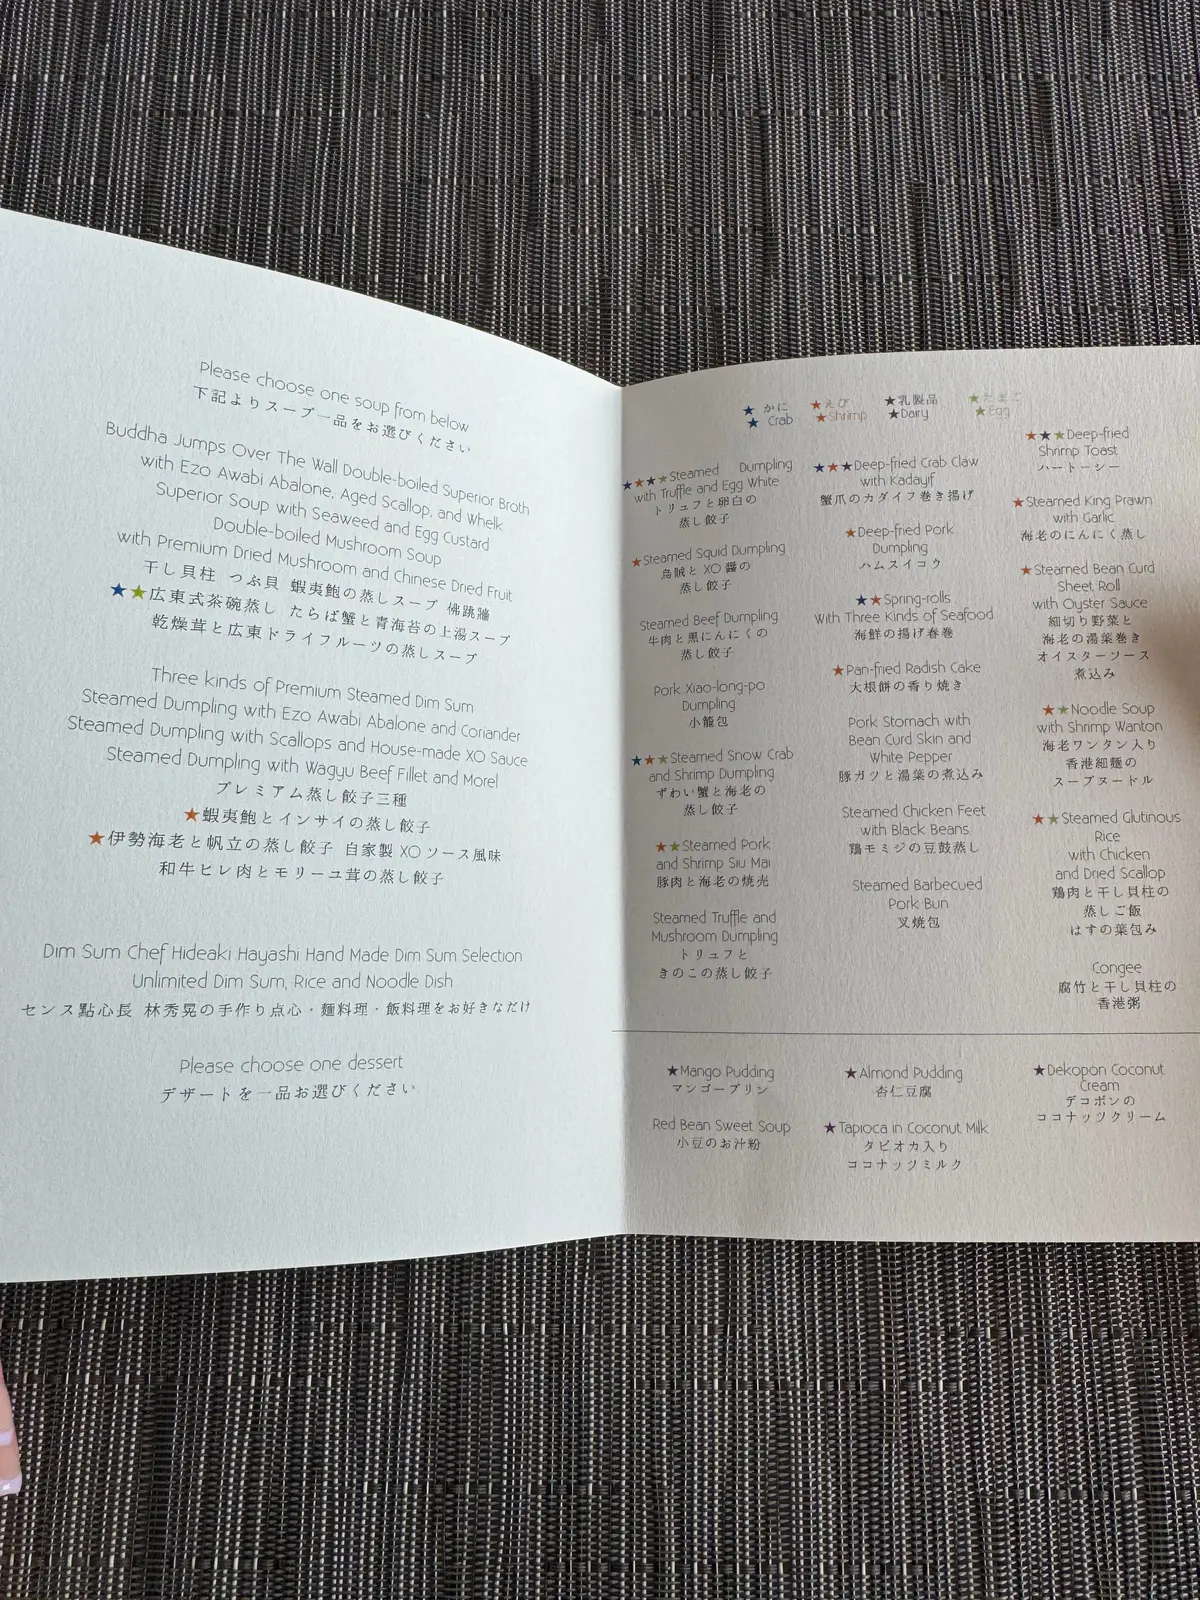 Please choose one soup from below
下記よりスープ一品をお選びください
Buddha Jumps Over The Wall Double-boiled Superior Broth
with Ezo Awabi Abalone, Aged Scallop, and Whelk
Superior Soup with Seaweed and Egg Custard
Double-boiled Mushroom Soup
with Premium Dried Mushroom and Chinese Dried Fruit
干し貝柱 つぶ貝 蝦夷鮑の蒸しスープ 佛跳牆
★★広東式茶碗蒸し たらば蟹と青海苔の上湯スープ
乾燥茸と広東ドライフルーツの蒸しスープ
Three kinds of Premium Steamed Dim Sum
Steamed Dumpling with Ezo Awabi Abalone and Coriander
Steamed Dumpling with Scallops and House-made XO Sauce
Steamed Dumpling with Wagyu Beef Fillet and Morel
プレミアム蒸し餃子三種
★蝦夷鮑とインサイの蒸し餃子
★伊勢海老と帆立の蒸し餃子 自家製 XO ソース風味
和牛ヒレ肉とモリーユ茸の蒸し餃子
Dim Sum Chef Hideaki Hayashi Hand Made Dim Sum Selection
Unlimited Dim Sum, Rice and Noodle Dish
センス點心長 林秀晃の手作り点心・麺料理・飯料理をお好きなだけ
Please choose one dessert
デザートを一品お選びください
★ かに ★えび ★乳製品 ★たまご
★ Crab ★Shrimp ★Dairy ★Egg
★★★★Steamed Dumpling
with Truffle and Egg White
トリュフと卵白の
蒸し餃子
★Steamed Squid Dumpling
烏賊と XO 醤の
蒸し餃子
Steamed Beef Dumpling
牛肉と黒にんにくの
蒸し餃子
Pork Xiao-long-po
Dumpling
小籠包
★★★Steamed Snow Crab
and Shrimp Dumpling
ずわい蟹と海老の
蒸し餃子
★★Steamed Pork
and Shrimp Siu Mai
豚肉と海老の焼売
Steamed Truffle and
Mushroom Dumpling
トリュフと
きのこの蒸し餃子
★★★Deep-fried Crab Claw
with Kadayif
蟹爪のカダイフ巻き揚げ
★Deep-fried Pork
Dumpling
ハムスイコウ
★★Spring-rolls
With Three Kinds of Seafood
海鮮の揚げ春巻
★Pan-fried Radish Cake
大根餅の香り焼き
Pork Stomach with
Bean Curd Skin and
White Pepper
豚ガツと湯葉の煮込み
Steamed Chicken Feet
with Black Beans
鶏モミジの豆鼓蒸し
Steamed Barbecued
Pork Bun
叉焼包
★★★Deep-fried
Shrimp Toast
ハートーシー
★Steamed King Prawn
with Garlic
海老のにんにく蒸し
★Steamed Bean Curd
Sheet Roll
with Oyster Sauce
細切り野菜と
海老の湯葉巻き
オイスターソース
煮込み
★★Noodle Soup
with Shrimp Wanton
海老ワンタン入り
香港細麺の
スープヌードル
★★Steamed Glutinous
Rice
with Chicken
and Dried Scallop
鶏肉と干し貝柱の
蒸しご飯
はすの葉包み
Congee
腐竹と干し貝柱の
香港粥
★Mango Pudding
マンゴープリン
Red Bean Sweet Soup
小豆のお汁粉
★Almond Pudding
杏仁豆腐
★Tapioca in Coconut Milk
タピオカ入り
ココナッツミルク
★Dekopon Coconut
Cream
デコポンの
ココナッツクリーム